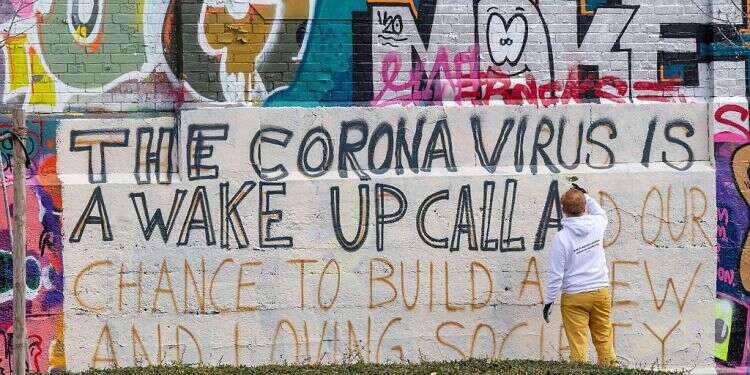 THE CORONA VIRUS IS
A WAKE UP CALL A D OUR
CHANCE TO BUILD A EW
AND LOVING SOC ETY